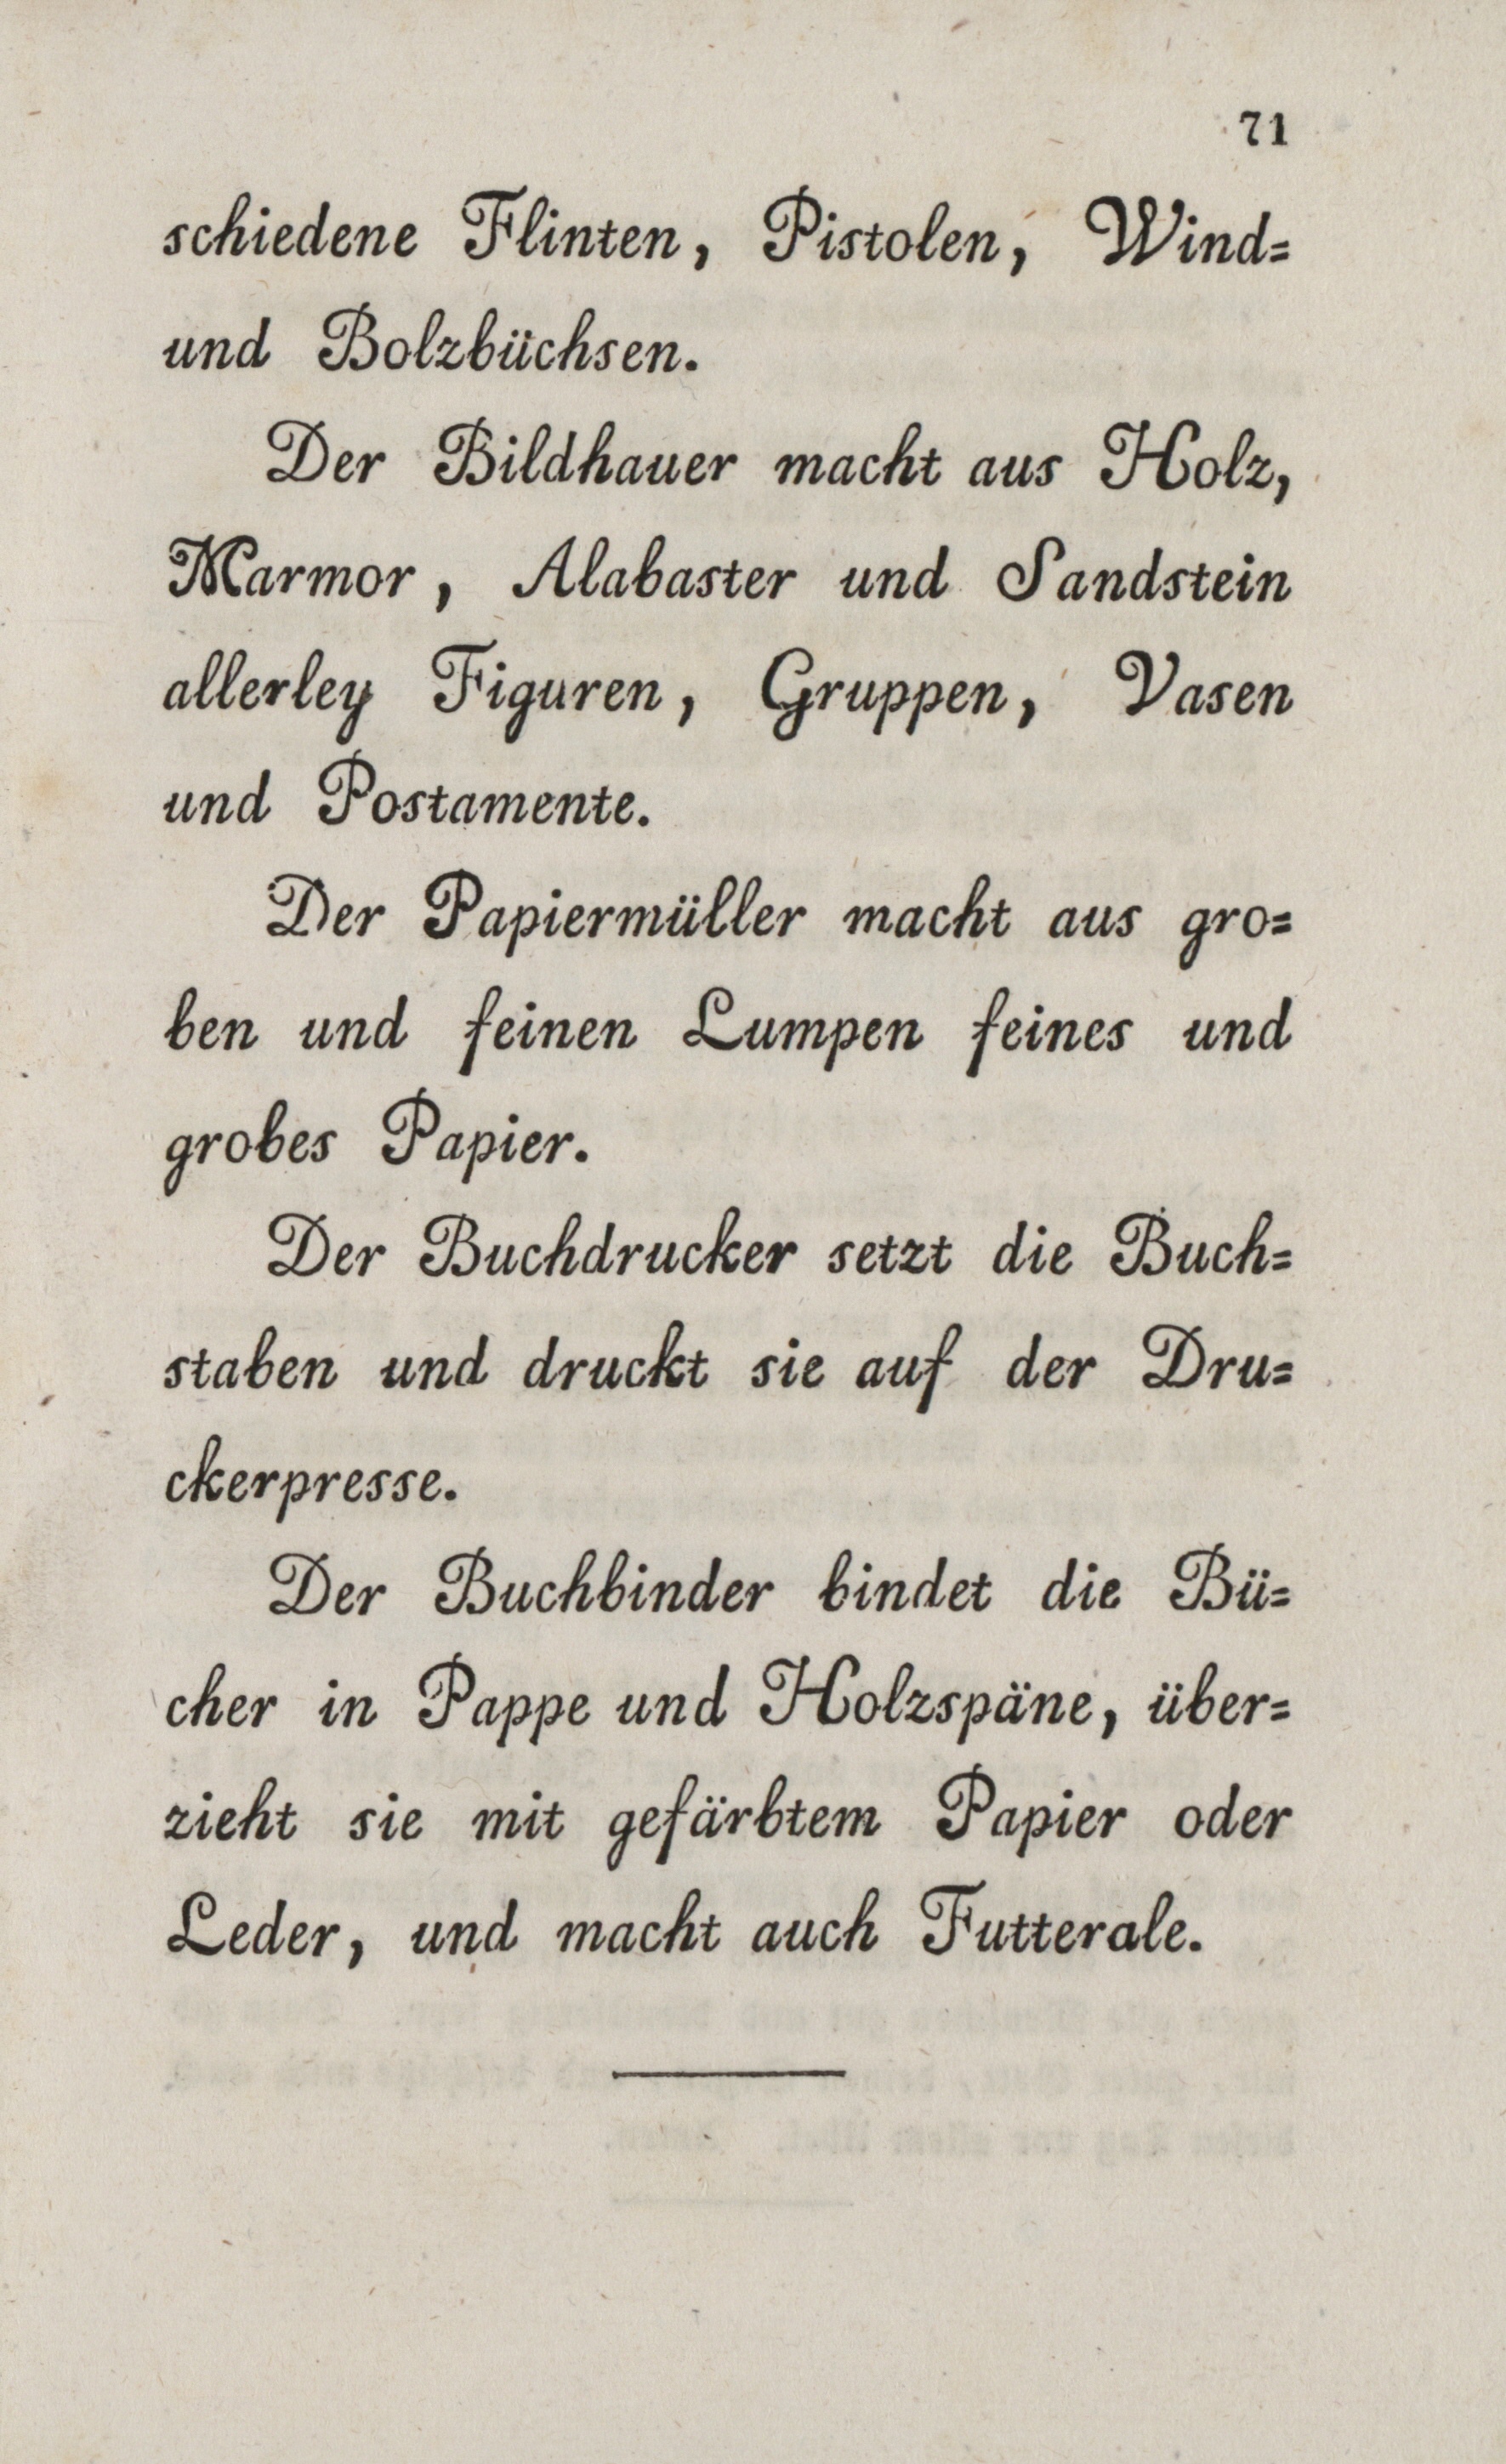 71
schiedene Flinten, Pistolen, Wind=
und Bolzbüchsen.
Der Bildhauer macht aus Holz,
Marmor, Alabaster und Sandstein
allerley Figuren, Gruppen, Vasen
und Postamente.
Der Papiermüller macht aus gro=
ben und feinen Lumpen feines und
grobes Papier.
Der Buchdrucker setzt die Buch=
staben und druckt sie auf der Dru=
ckerpresse.
Der Buchbinder bindet die Bü=
cher in Pappe und Holzspäne, über=
zieht sie mit gefärbtem Papier oder
Leder, und macht auch Futterale.